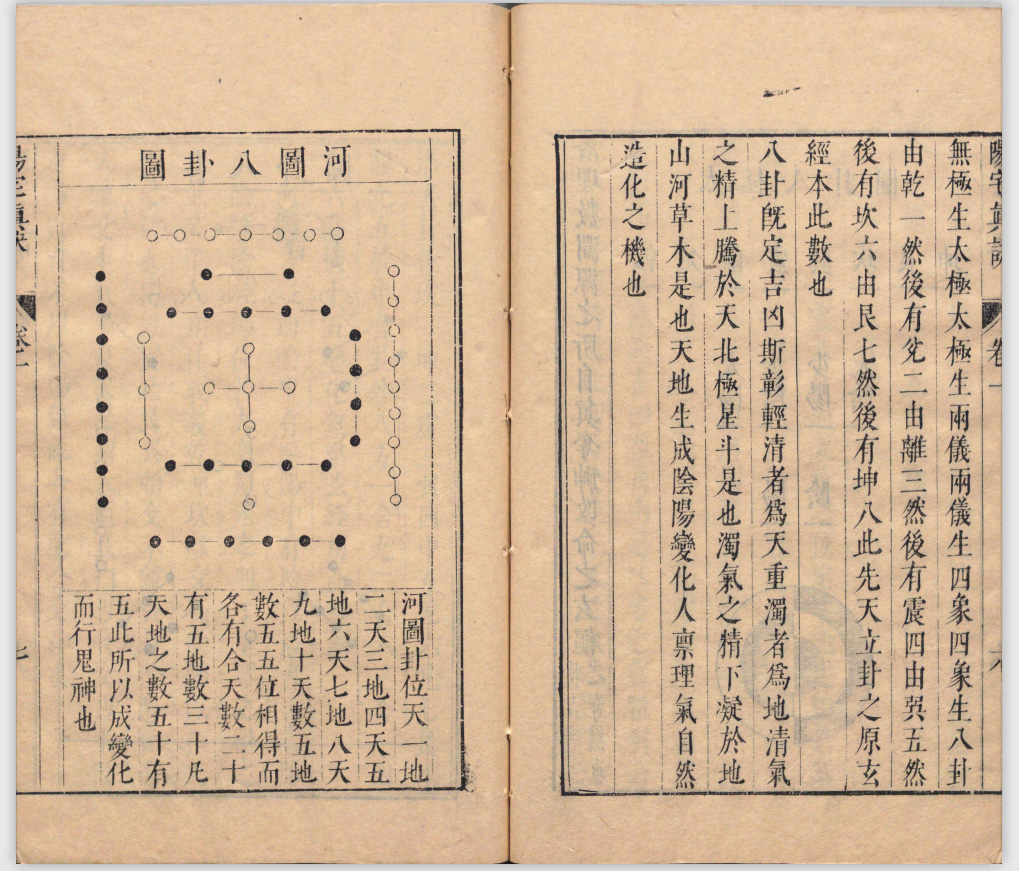 陽宅眞訣
卷一
六
無極生太極太極生兩儀兩儀生四象四象生八卦
由乾一然後有兊二由離三然後有震四由㢲五然
後有坎六由艮七然後有坤八此先天立卦之原玄
經本此數也
八卦旣定吉凶斯彰輕清者爲天重濁者爲地清氣
之精上騰於天北極星斗是也濁氣之精下凝於地
山河草木是也天地生成陰陽變化人禀理氣自然
造化之機也
河圖八卦圖
河圖卦位天一地
二天三地四天五
地六天七地八天
九地十天數五地
數五五位相得而
各有合天數二十
有五地數三十凡
天地之數五十有
五此所以成變化
而行鬼神也
陽宅眞訣
卷一
七